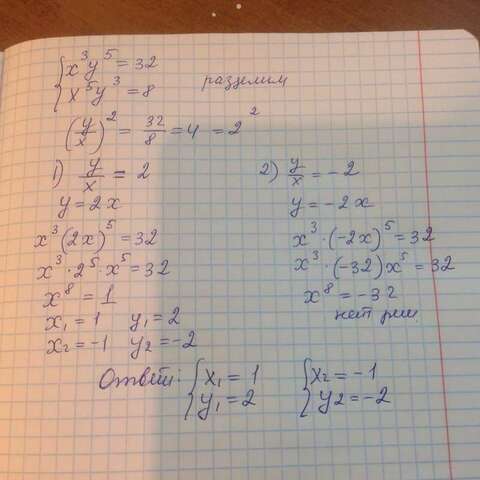 x³y⁵ = 32
x⁵y³ = 8
разделим
(y/x)² = 32/8 = 4 = 2²
1) y/x = 2
y = 2x
x³(2x)⁵ = 32
x³ · 2⁵ · x⁵ = 32
x⁸ = 1
x₁ = 1 y₁ = 2
x₂ = -1 y₂ = -2
2) y/x = -2
y = -2x
x³ · (-2x)⁵ = 32
x³ · (-32)x⁵ = 32
x⁸ = -32
нет реш
Ответ: { x₁ = 1 { x₂ = -1
y₁ = 2 y₂ = -2